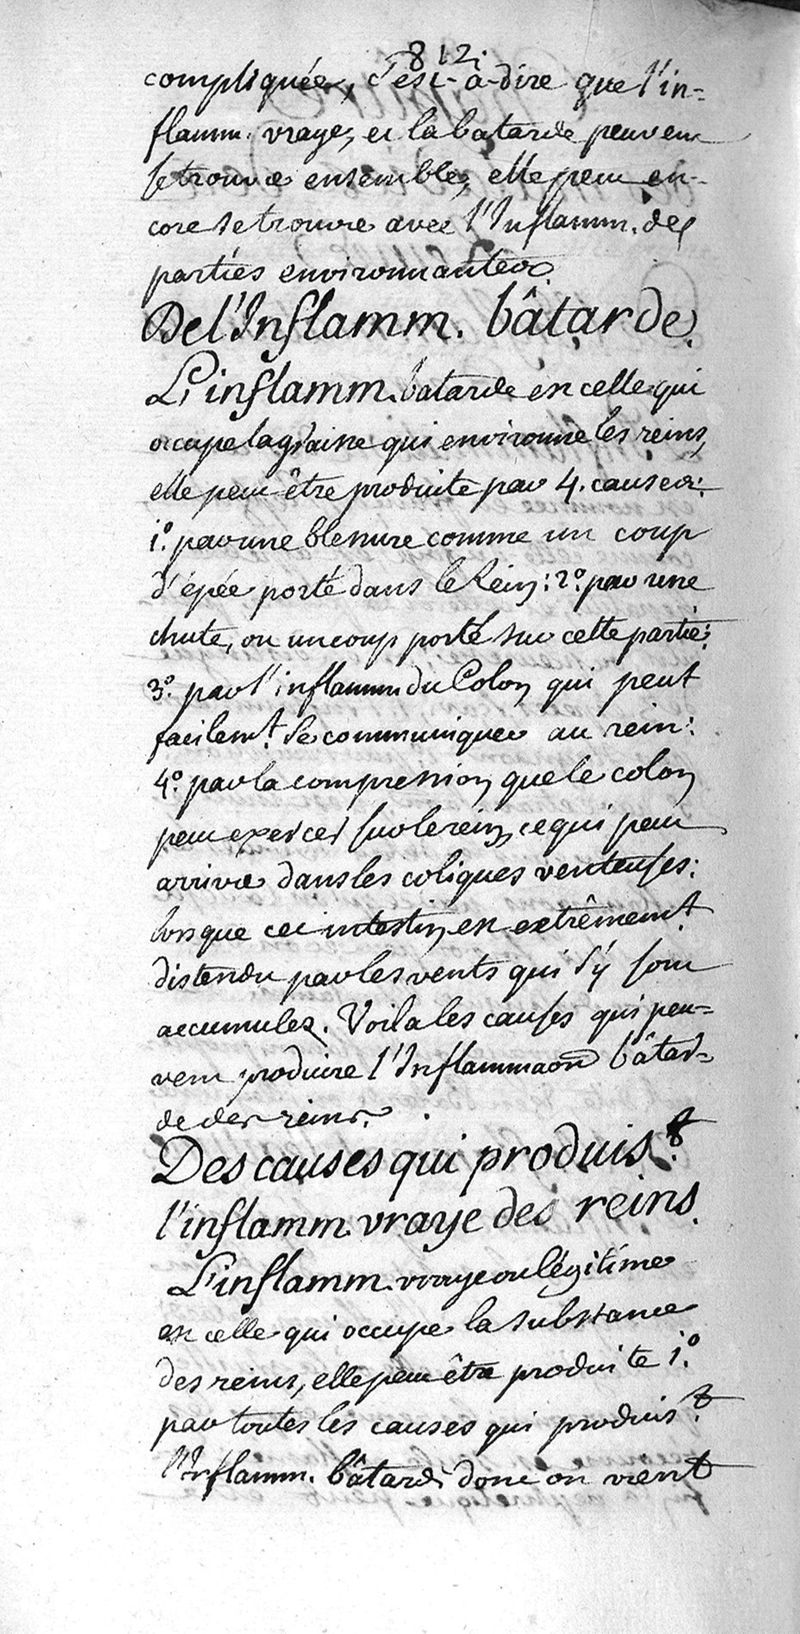 812.
compliquée, c'est-à-dire que l'in-
flamm. vraye, et la batarde peuvent
se trouver ensemble, elle peut en-
core se trouver avec l'Inflamm. des
parties environnantes.
De l'Inflamm. bâtarde.
L'inflamm. batarde est celle qui
occupe la graisse qui environne les reins,
elle peut être produite par 4. causes:
1.° par une blessure comme un coup
d'épée porté dans le Rein: 2.° par une
chute, ou un coup porté sur cette partie:
3.° par l'inflamm. du Colon qui peut
facilem.t se communiquer au rein:
4.° par la compression que le colon
peut exercer sur le rein, ce qui peut
arriver dans les coliques venteuses:
lorsque cet intestin est extrêmem.t
distendu par les vents qui s'y sont
accumulez. Voila les causes qui peu=
vent produire l'Inflammaon bâtar=
de des reins.
Des causes qui produis.t
l'inflamm. vraye des reins.
L'inflamm. vraye ou légitime
est celle qui occupe la substance
des reins, elle peut être produite 1.°
par toutes les causes qui produis.t
l'Inflamm. bâtarde donc on vient